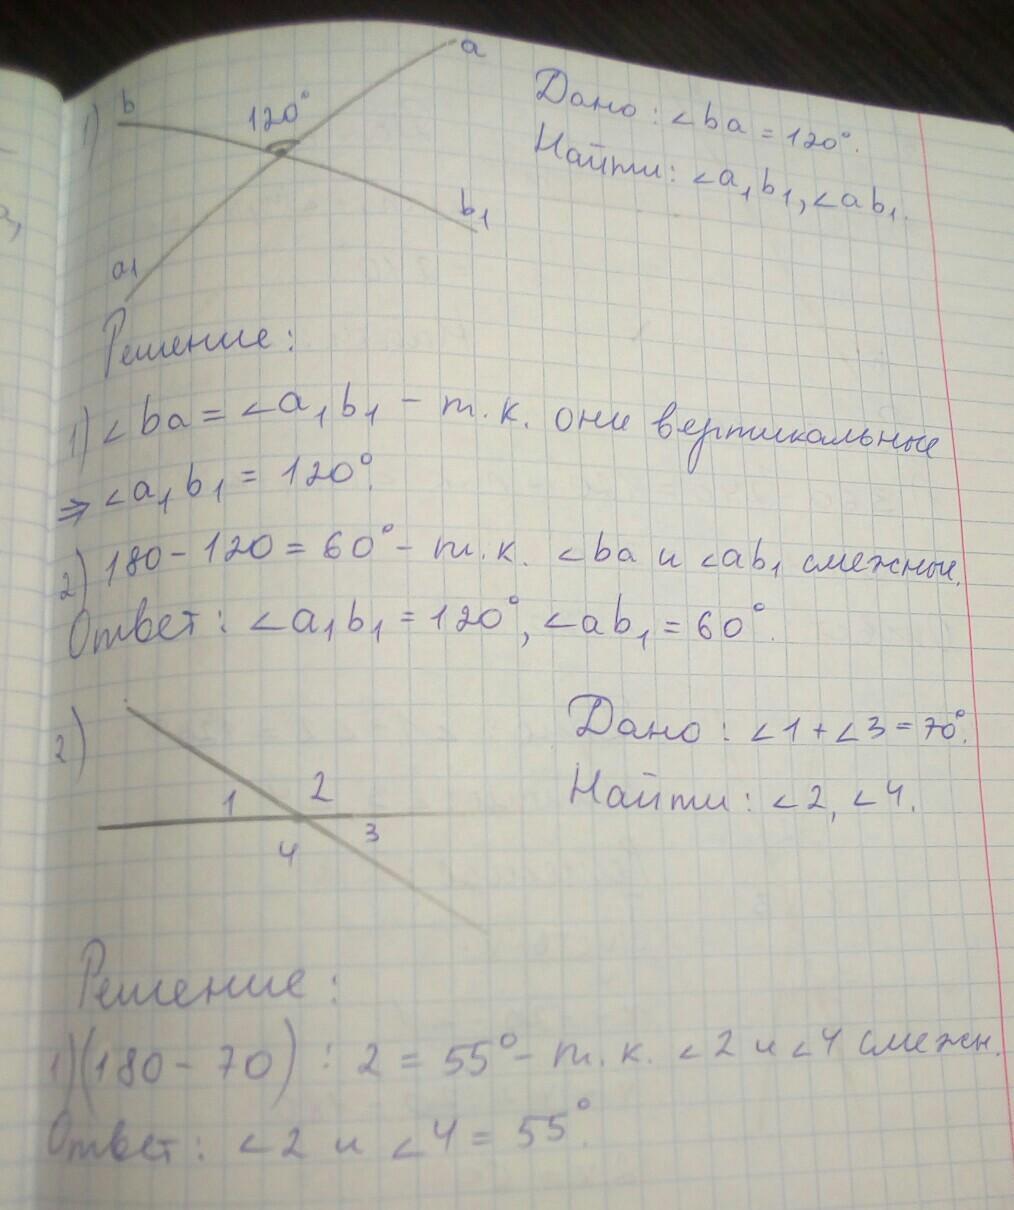 1) b 120° a
a₁ b₁
Дано: ∠ba = 120°.
Найти: ∠a₁b₁, ∠ab₁.
Решение:
1) ∠ba = ∠a₁b₁ - т.к. они вертикальные
⇒ ∠a₁b₁ = 120°.
2) 180 - 120 = 60° - т.к. ∠ba и ∠ab₁ смежные.
Ответ: ∠a₁b₁ = 120°, ∠ab₁ = 60°.
2)
1 2
4 3
Дано: ∠1 + ∠3 = 70°.
Найти: ∠2, ∠4.
Решение:
1) (180 - 70) : 2 = 55° - т.к. ∠2 и ∠4 смежн.
Ответ: ∠2 и ∠4 = 55°.